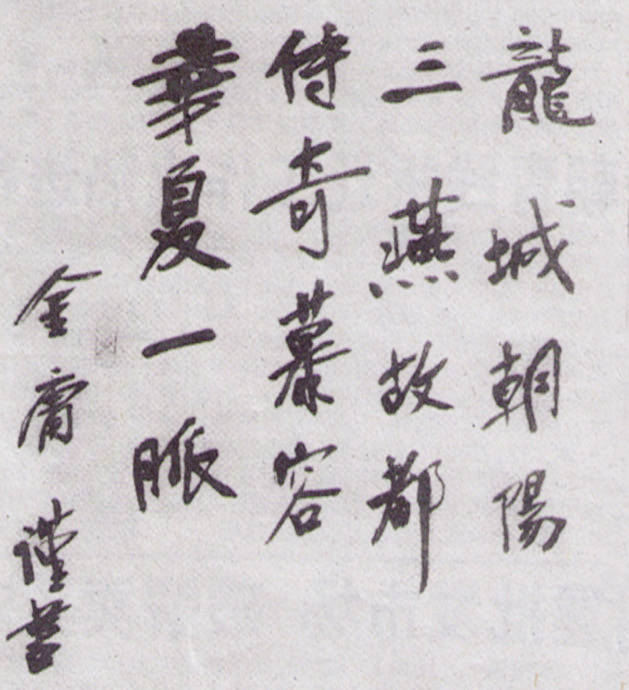 龍城朝陽
三燕故都
侍奇慕容
華夏一脈
金庸謹書